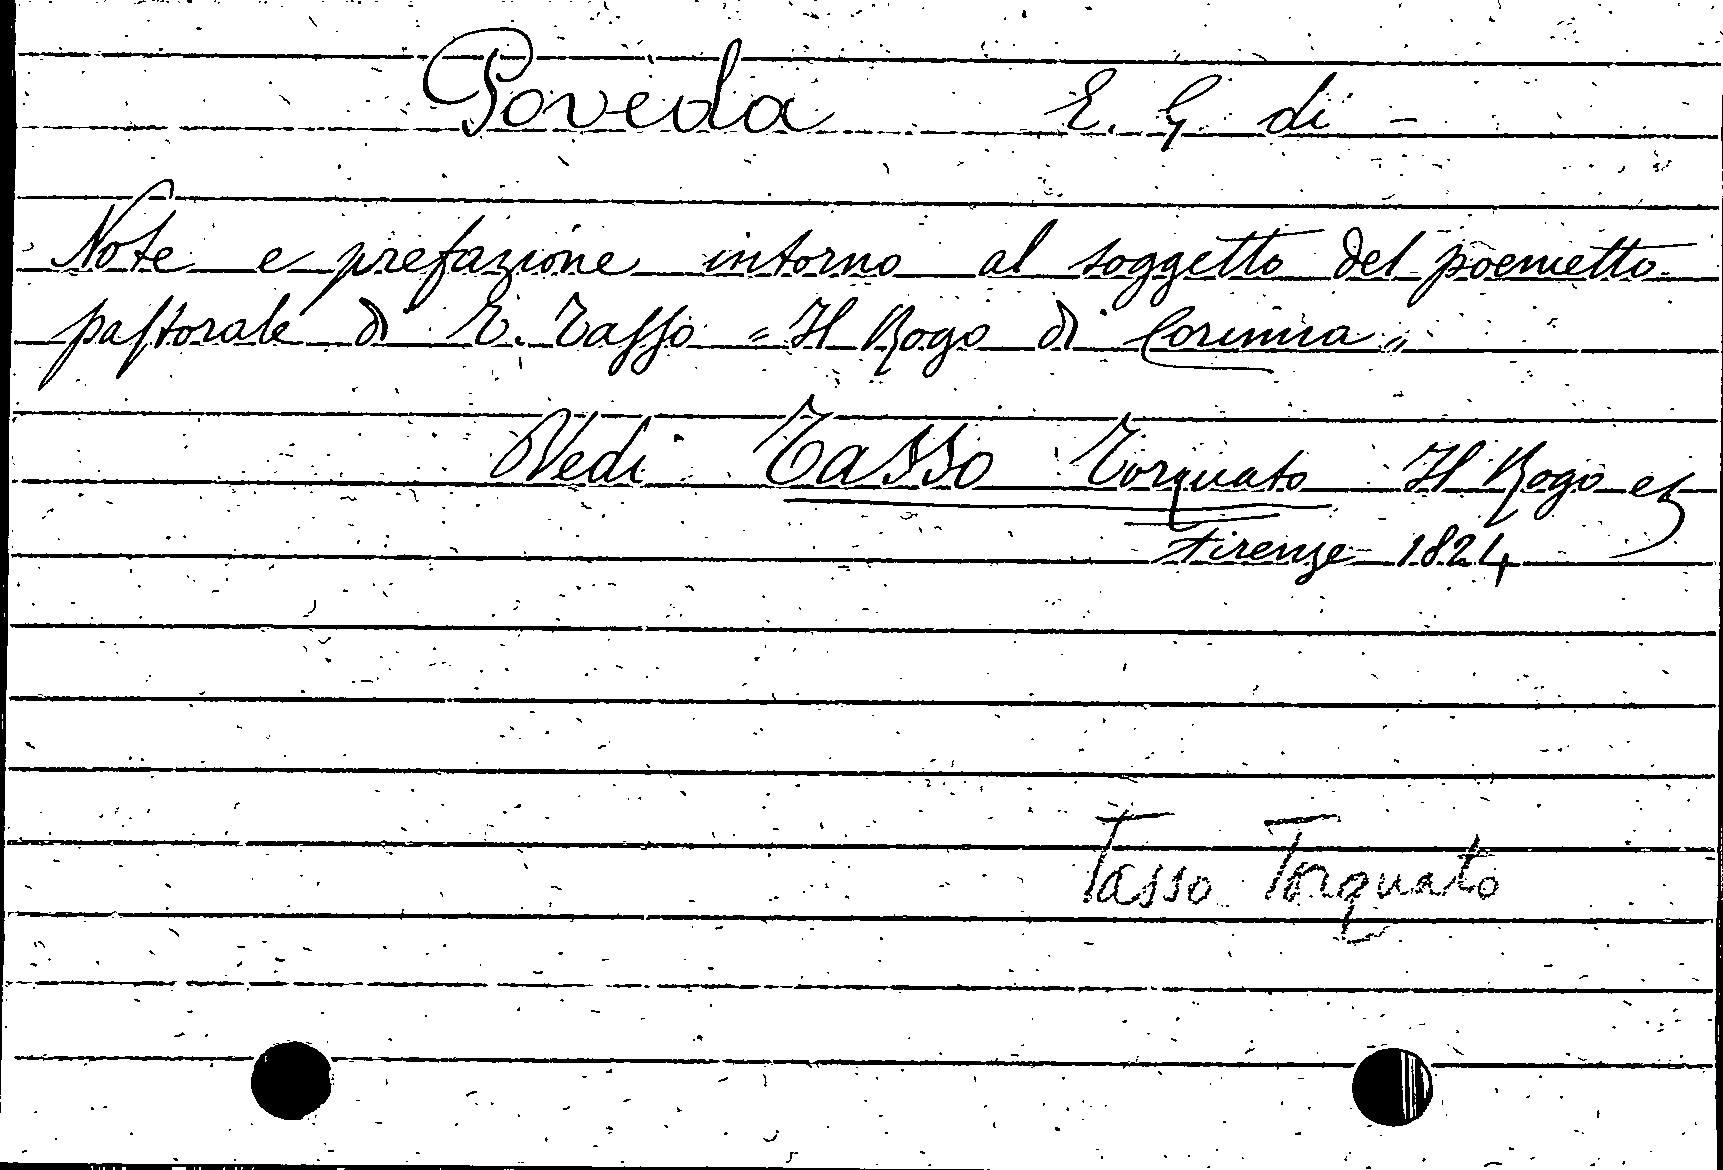 Poveda E. G. di -
Note e prefazione intorno al soggetto del poemetto
pastorale di T. Tasso "Il Rogo di Corinna"
Vedi Tasso Torquato Il Rogo et
Firenze 1824
Tasso Torquato